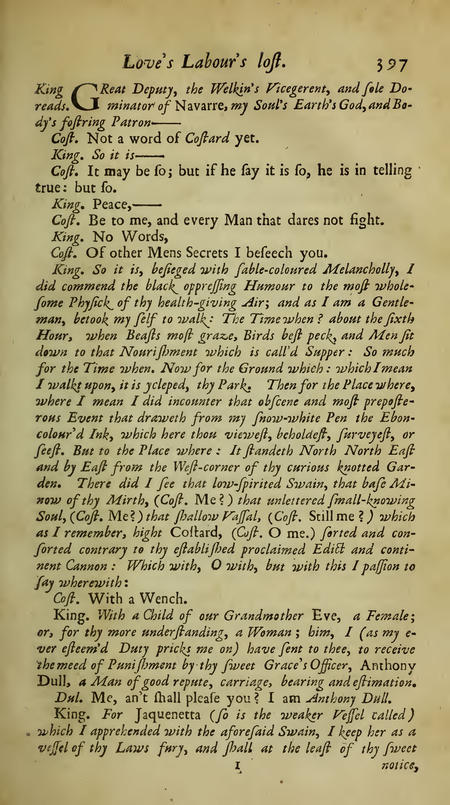 Love's Labour's loſt. 397
King GReat Deputy, the Welkin's Vicegerent, and ſole Do-
reads. minator of Navarre, my Soul's Earth's God, and Bo-
dy's foſtring Patron——
Coſt. Not a word of Coſtard yet.
King. So it is——
Coſt. It may be ſo; but if he ſay it is ſo, he is in telling
true: but ſo.
King. Peace,——
Coſt. Be to me, and every Man that dares not fight.
King. No Words,
Coſt. Of other Mens Secrets I beſeech you.
King. So it is, beſieged with ſable-coloured Melancholly, I
did commend the black oppreſſing Humour to the moſt whole-
ſome Phyſick of thy health-giving Air; and as I am a Gentle-
man, betook my ſelf to walk: The Time when? about the ſixth
Hour, when Beaſts moſt graze, Birds beſt peck, and Men ſit
down to that Nouriſhment which is call'd Supper: So much
for the Time when. Now for the Ground which: which I mean
I walkt upon, it is ycleped, thy Park. Then for the Place where,
where I mean I did incounter that obſcene and moſt prepoſte-
rous Event that draweth from my ſnow-white Pen the Ebon-
colour'd Ink, which here thou vieweſt, beholdeſt, ſurveyeſt, or
ſeeſt. But to the Place where: It ſtandeth North North Eaſt
and by Eaſt from the Weſt-corner of thy curious knotted Gar-
den. There did I ſee that low-ſpirited Swain, that baſe Mi-
now of thy Mirth, (Coſt. Me?) that unlettered ſmall-knowing
Soul, (Coſt. Me?) that ſhallow Vaſſal, (Coſt. Still me?) which
as I remember, hight Coſtard, (Coſt. O me.) ſorted and con-
ſorted contrary to thy eſtabliſhed proclaimed Edict and conti-
nent Cannon: Which with, O with, but with this I paſſion to
ſay wherewith:
Coſt. With a Wench.
King. With a Child of our Grandmother Eve, a Female;
or, for thy more underſtanding, a Woman; him, I (as my e-
ver eſteem'd Duty pricks me on) have ſent to thee, to receive
the meed of Puniſhment by thy ſweet Grace's Officer, Anthony
Dull, a Man of good repute, carriage, bearing and eſtimation.
Dul. Me, an't ſhall pleaſe you? I am Anthony Dull.
King. For Jaquenetta (ſo is the weaker Veſſel called)
which I apprehended with the aforeſaid Swain, I keep her as a
veſſel of thy Laws fury, and ſhall at the leaſt of thy ſweet
I notice,